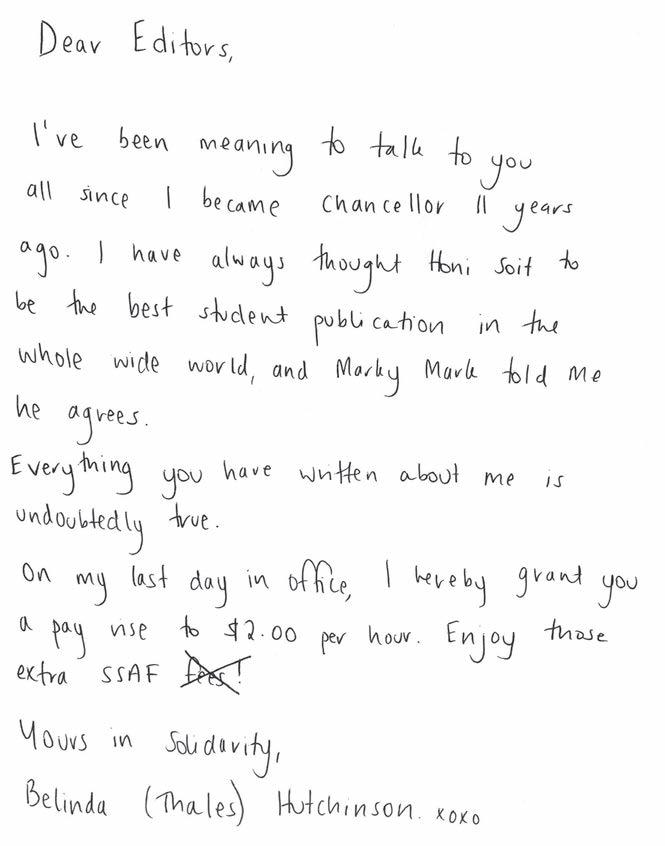 Dear Editors,
I've been meaning to talk to you
all since I became Chancellor 11 years
ago. I have always thought Honi Soit to
be the best student publication in the
whole wide world, and Marky Mark told me
he agrees.
Everything you have written about me is
undoubtedly true.
On my last day in office, I hereby grant you
a pay rise to $2.00 per hour. Enjoy those
extra SSAF fees!
Yours in Solidarity,
Belinda (Thales) Hutchinson. xoxo